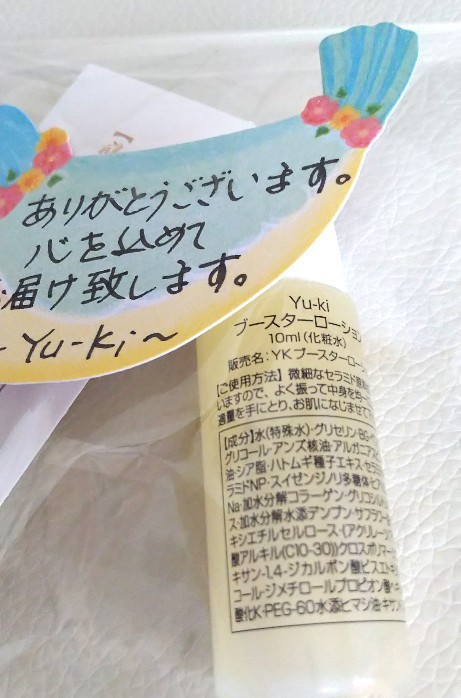 ありがとうございます。
心を込めて
お届け致します。
~Yu-ki~
Yu-ki
ブースターローション
10ml(化粧水)
販売名:YKブースターロー
【ご使用方法】微細なセラミド
いますので、よく振って中身を均
適量を手にとり、お肌になじませて
【成分】水(特殊水)・グリセリン・BG・
グリコール・アンズ核油・アルガニア
油・シア脂・ハトムギ種子エキス・セラミ
ラミドNP・スイゼンジノリ多糖体・ヒア
Na・加水分解コラーゲン・グリコシル
ス・加水分解水添デンプン・サフラワー
キシエチルセルロース・(アクリレーツ
酸アルキル(C10-30))クロスポリマー
キサン-1,4-ジカルボン酸ビスエトキ
コール・ジメチロールプロピオン酸
酸化K・PEG-60水添ヒマシ油・キサン